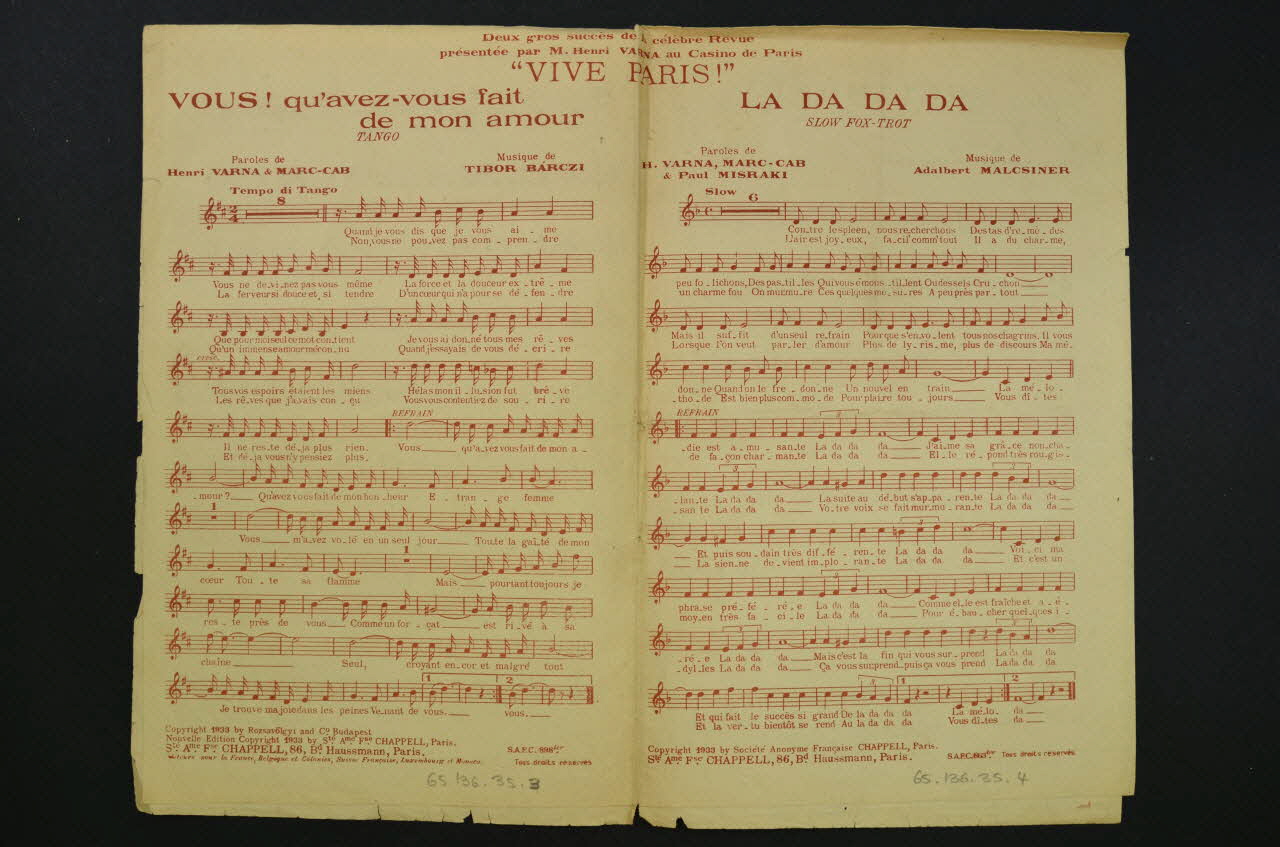 Deux gros succès de la célèbre Revue
présentée par M. Henri VARNA au Casino de Paris
"VIVE PARIS!"
VOUS! qu'avez-vous fait
de mon amour
TANGO
Paroles de
Henri VARNA & MARC-CAB
Musique de
TIBOR BARCZI
Tempo di Tango
8
Quand je vous dis que je vous ai_me
Non, vous ne pou_vez pas com_pren_dre
Vous ne de_vi_nez pas vous même La force et la douceur ex_trê_me
La ferveur si douce et si tendre D'un cœur qui n'a pour se dé_fen_dre
Que pour moi seul ce mot con_tient Je vous ai don_né tous mes rê_ves
Qu'un immense amour mécon_nu Quand j'essayais de vous dé_cri_re
cresc.
Tous vos espoirs étaient les miens Hélas mon il_lu_sion fut brè_ve
Les rê_ves que j'a_vais con_çu Vous vous contentiez de sou_ri_re
REFRAIN
Il ne res_te dé_ja plus rien. Vous____ qu'a_vez vous fait de mon a_
Et dé_ja vous n'y pensiez plus.
_mour?____ Qu'avez vous fait de mon bon_heur E_tran_ge femme
1
Vous____ m'a_vez vo_lé en un seul jour____ Tou_te la gaî_té de mon
1
cœur Tou_te sa flamme Mais____ pourtant toujours je
res_te près de vous____ Comme un for_çat____ est ri_vé à sa
chaîne____ Seul, croyant en_cor et malgré tout
1 2
Je trouve ma joie dans les peines Ve_nant de vous.____ vous.____
Copyright 1933 by Rozsavölgyi and Co Budapest
Nouvelle Edition Copyright 1933 by Sté Ame Fse CHAPPELL, Paris.
Sté Ame Fse CHAPPELL, 86, Bd Haussmann, Paris.
Editeurs pour la France, Belgique et Colonies, Suisse Française, Luxembourg et Monaco.
S.A.F.C. 898ter
Tous droits réservés
65.136.35.3
LA DA DA DA
SLOW FOX-TROT
Paroles de
H. VARNA, MARC-CAB
& Paul MISRAKI
Musique de
Adalbert MALCSINER
Slow
6
Con_tre le spleen, nous re_cherchons Des tas d're_mè_des
L'air est joy_eux, fa_cil' comm' tout Il a du char_me,
peu fo_lichons, Des pas_til_les Qui vous émous_til_lent Ou des sels Cru_chon____
un charme fou On mur_mure Ces quelques me_su_res A peu près par_tout____
Mais il suf_fit d'un seul re_frain Pour que s'en_vo_lent tous nos chagrins, Il vous
Lorsque l'on veut par_ler d'amour Plus de ly_ris_me, plus de discours Ma mé_
don_ne Quand on le fre_don_ne Un nouvel en train____ La mé_lo_
tho_de Est bien plus com_mo_de Pour plaire tou_jours____ Vous dî_tes
REFRAIN
_die est a_mu_san_te La da da da____ J'ai_me sa grâ_ce non_cha_
de fa_çon char_man_te La da da da____ El_le ré_pond très rou_gis_
_lan_te La da da da____ La suite au dé_but s'ap_pa_ren_te La da da da____
_san_te La da da da____ Vo_tre voix se fait mur_mu_ran_te La da da da____
Et puis sou_dain très dif_fé_ren_te La da da da____ Voi_ci ma
La sien_ne de_vient im_plo_ran_te La da da da____ Et c'est un
phra_se pré_fé_ré_e La da da da____ Comme el_le est fraîche et a_é_
moy_en très fa_ci_le La da da da____ Pour é_bau_cher quel_ques i_
_ré_e La da da da____ Mais c'est la fin qui vous sur_prend La da da da
_dyl_les La da da da____ Ça vous surprend, puis ça vous prend La da da da
1 2
Et qui fait le succès si grand De la da da da La mé_lo_ da
Et la ver_tu bientôt se rend Au la da da da Vous dî_tes da
Copyright 1933 by Société Anonyme Française CHAPPELL, Paris.
Sté Ame Fse CHAPPELL, 86, Bd Haussmann, Paris.
S.A.F.C. 863ter
Tous droits réservés
65.136.35.4